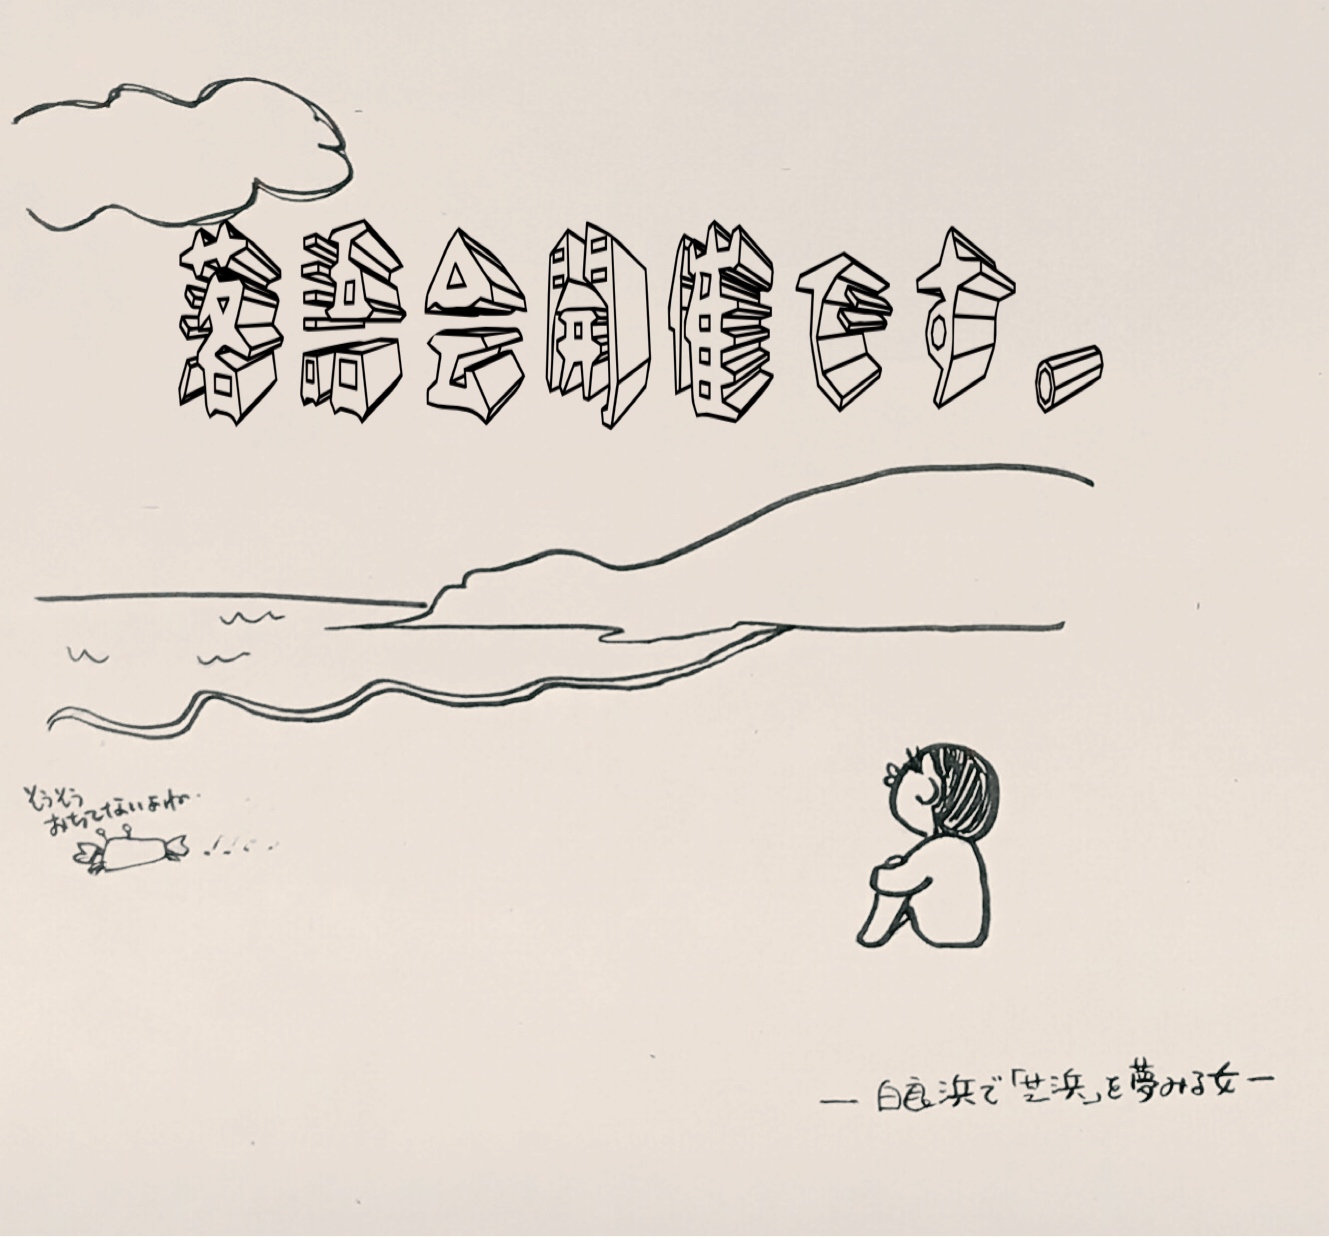 落語会開催です。
そうそう
おちてないよね
— 白良浜で「芝浜」を夢みる女 —